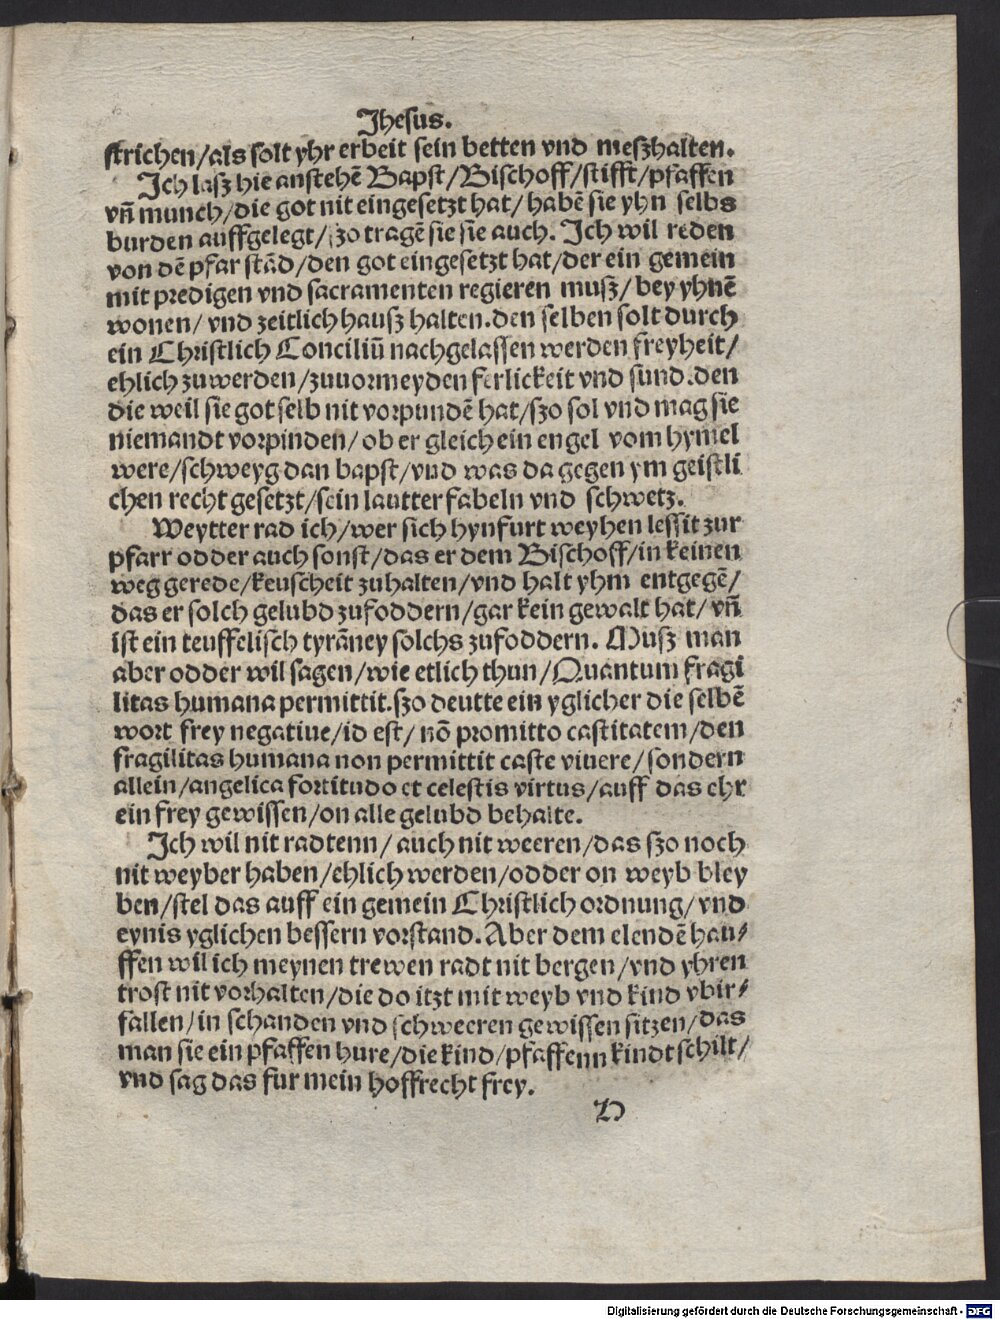 Jhesus.
strichen/als solt yhr erbeit sein betten vnd meßzhalten.
Ich laſz hie anstehē Bapst/Bischoff/stifft/pfaffen
vn̄ munch/die got nit eingesetzt hat/habē sie yhn selbs
burden auffgelegt/szo tragē sie sie auch. Ich wil reden
von dē pfar stād/den got eingesetzt hat/der ein gemein
mit predigen vnd sacramenten regieren muſz/bey yhnē
wonen/vnd zeitlich hauſz halten.den selben solt durch
ein Christlich Conciliū nachgelassen werden freyheit/
ehlich zuwerden/zuuormeyden ferlickeit vnd sund.den
die weil sie got selb nit vorpundē hat/szo sol vnd mag sie
niemandt vorpinden/ob er gleich ein engel vom hymel
were/schweyg dan bapst/vnd was da gegen ym geistli
chen recht gesetzt/sein lautter fabeln vnd schwetz.
Weytter rad ich/wer sich hynfurt weyhen lessit zur
pfarr odder auch sonst/das er dem Bischoff/in keinen
weg gerede/keuscheit zuhalten/vnd halt yhm entgegē/
das er solch gelubd zufoddern/gar kein gewalt hat/vn̄
ist ein teuffelisch tyrāney solchs zufoddern. Muſz man
aber odder wil sagen/wie etlich thun/Quantum fragi
litas humana permittit.szo deutte ein yglicher die selbē
wort frey negatiue/id est/nō promitto castitatem/den
fragilitas humana non permittit caste viuere/sondern
allein/angelica fortitudo et celestis virtus/auff das ehr
ein frey gewissen/on alle gelubd behalte.
Ich wil nit radtenn/auch nit weeren/das szo noch
nit weyber haben/ehlich werden/odder on weyb bley
ben/stel das auff ein gemein Christlich ordnung/vnd
eynis yglichen bessern vorstand. Aber dem elendē hau⸗
ffen wil ich meynen trewen radt nit bergen/vnd yhren
trost nit vorhalten/die do itzt mit weyb vnd kind vbir⸗
fallen/in schanden vnd schweeren gewissen sitzen/das
man sie ein pfaffen hure/die kind/pfaffenn kindt schilt/
vnd sag das fur mein hoffrecht frey.
D
Digitalisierung gefördert durch die Deutsche Forschungsgemeinschaft - DFG